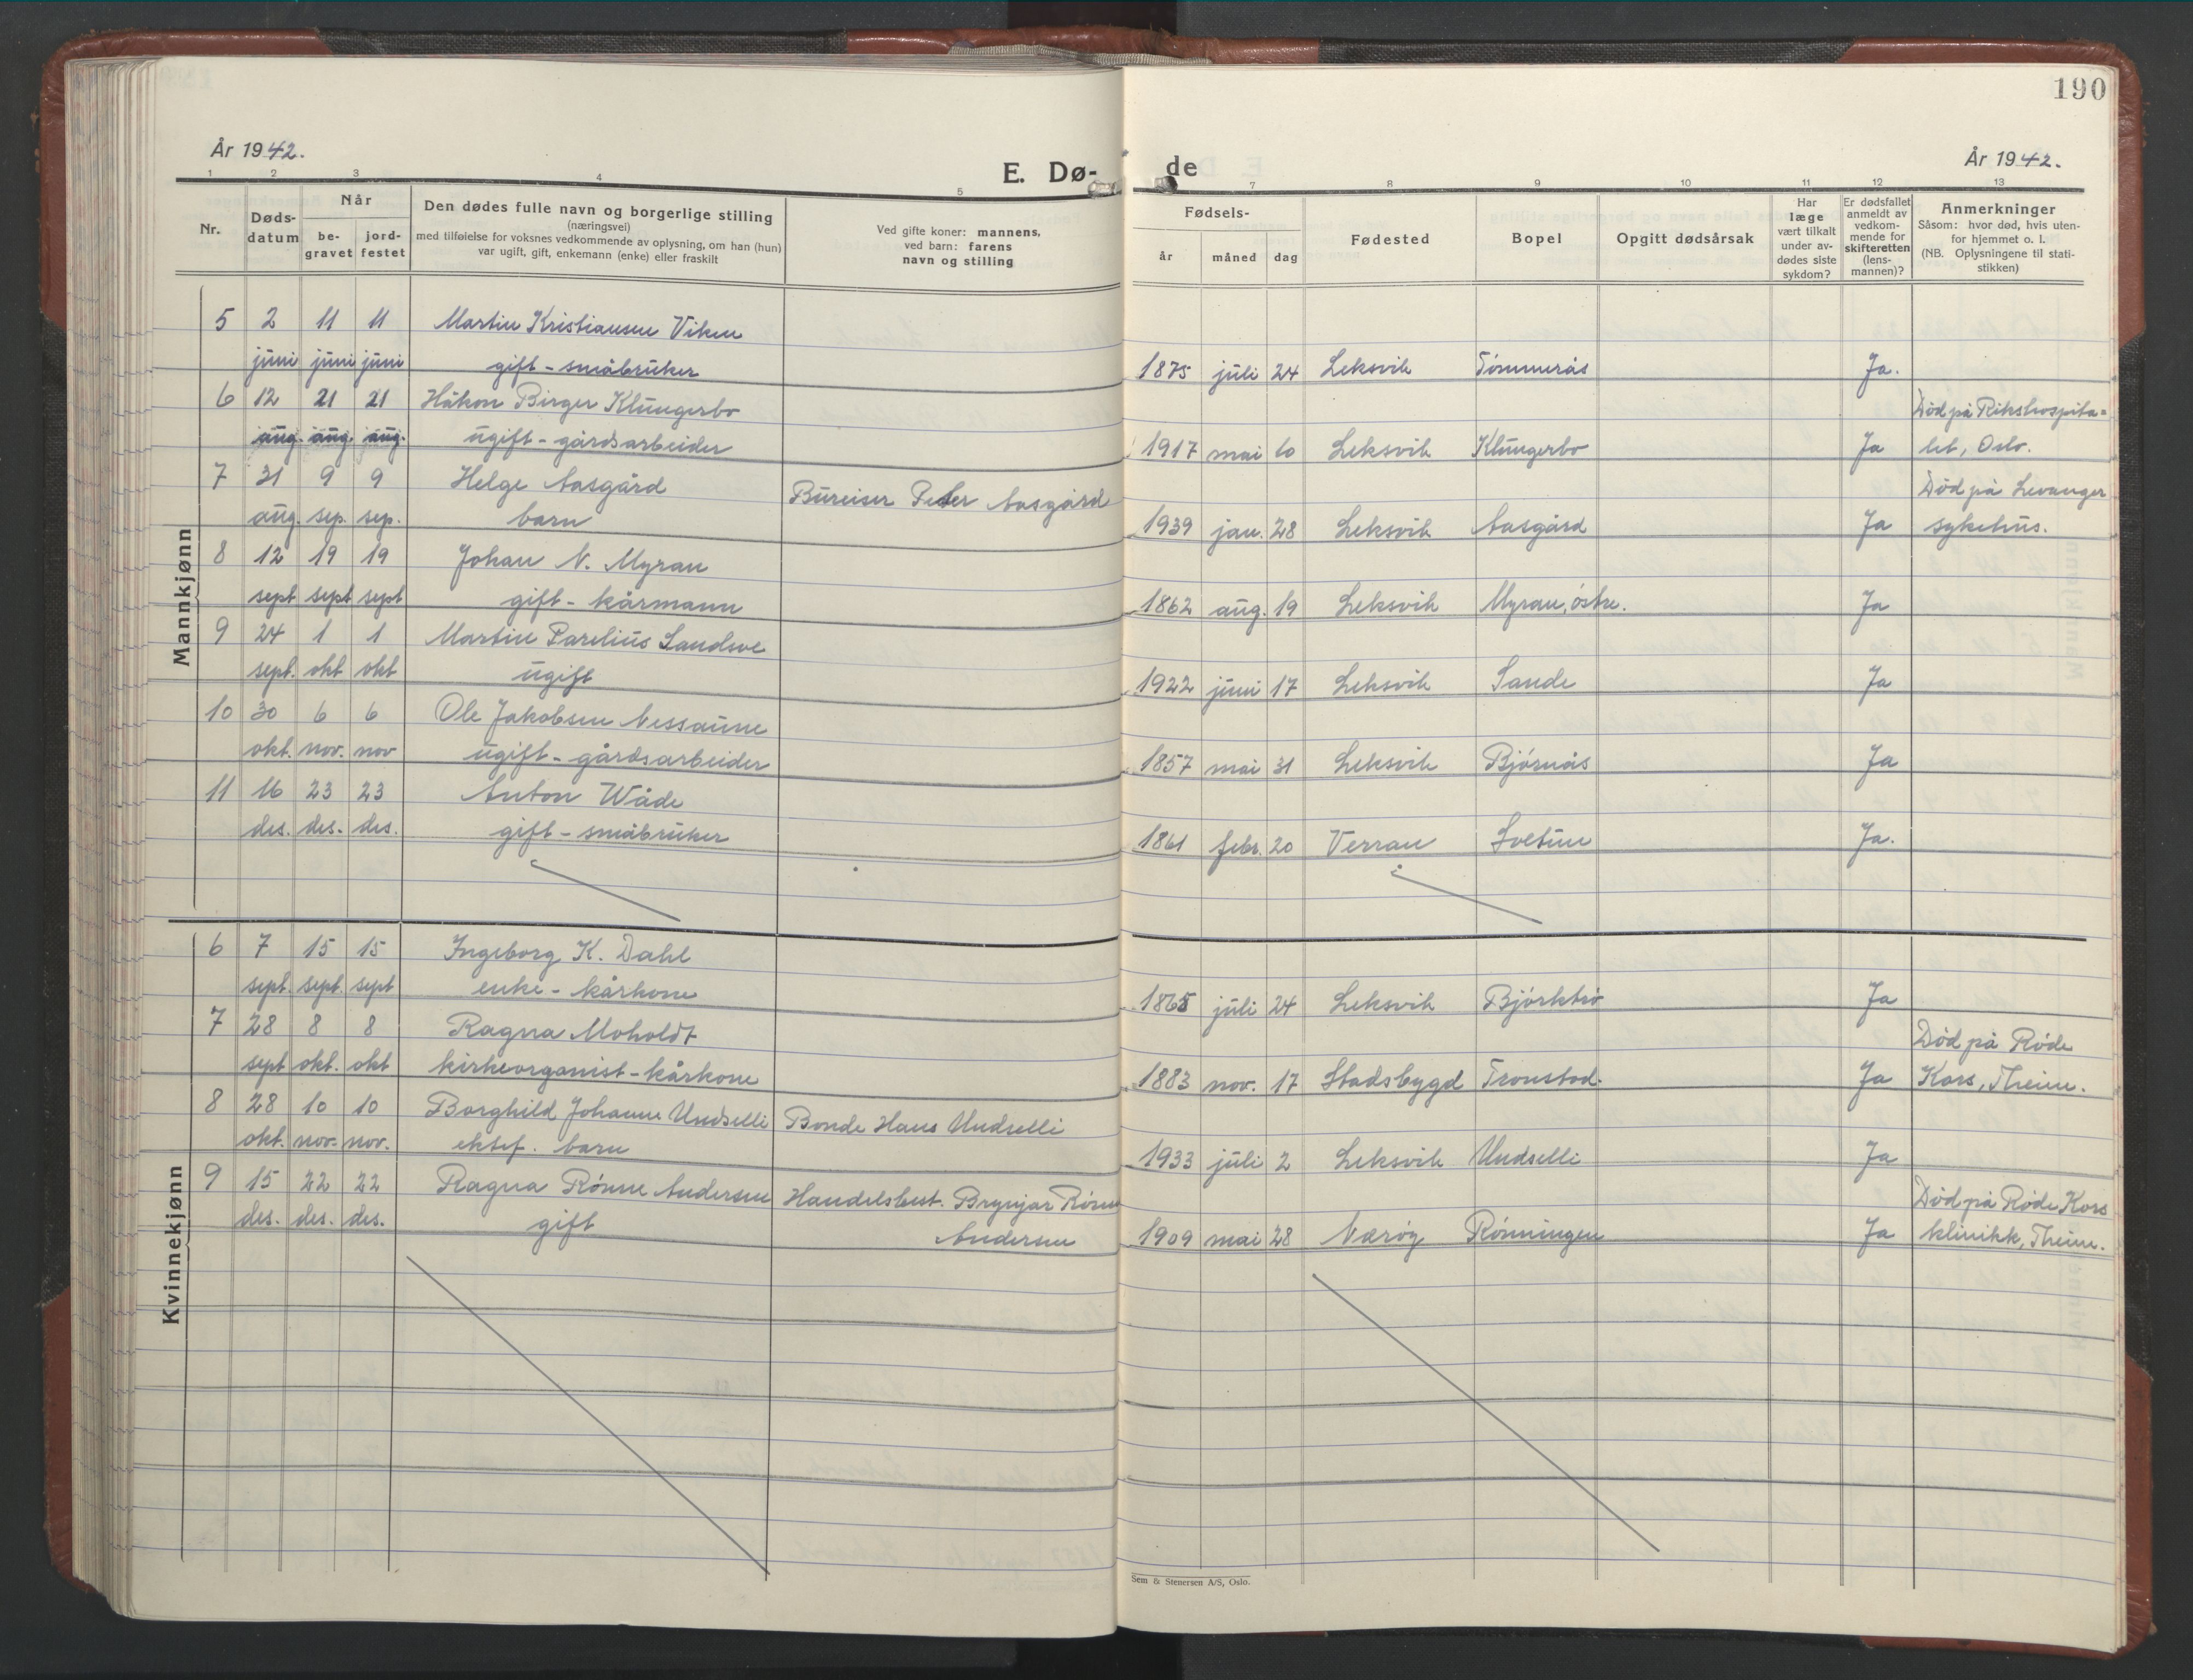 190
År 1942.
E. Dø-
de
År 1942.
1 2 3 4 5 7 8 9 10 11 12 13
Nr.
Døds-
datum
Når
be-
gravet
jord-
festet
Den dødes fulle navn og borgerlige stilling
(næringsvei)
med tilføielse for voksnes vedkommende av oplysning, om han (hun)
var ugift, gift, enkemann (enke) eller fraskilt
Ved gifte koner: mannens,
ved barn: farens
navn og stilling
Fødsels-
år måned dag
Fødested
Bopel
Opgitt dødsårsak
Har
læge
vært tilkalt
under av-
dødes siste
sykdom?
Er dødsfallet
anmeldt av
vedkom-
mende for
skifteretten
(lens-
mannen)?
Anmerkninger
Såsom: hvor død, hvis uten-
for hjemmet o. l.
(NB. Oplysningene til stati-
stikken)
Mannkjønn
5 2 11 11 Martin Kristiansen Viken
juni juni juni gift - småbruker 1875 juli 24 Leksvik Tømmerås Ja.
6 12 21 21 Håkon Birger Klungerbo Død på Rikshospita=
aug. aug. aug. ugift - gårdsarbeider 1917 mai 10 Leksvik Klungerbo Ja let, Oslo.
7 31 9 9 Helge Aasgård Bureiser Peter Aasgård Død på Levanger
aug. sep. sep. barn 1939 jan. 28 Leksvik Aasgård Ja sykehus.
8 12 19 19 Johan N. Myran
sept sept sept gift - kårmann 1862 aug. 19 Leksvik Myran, østre. Ja
9 24 1 1 Martin Parelius Sandsve
sept. okt okt ugift 1922 juni 17 Leksvik Sande Ja
10 30 6 6 Ole Jakobsen Nessaune
okt. nov. nov ugift - gårdsarbeider 1857 mai 31 Leksvik Bjørnås Ja
11 16 23 23 Anton Wåde
des. des. des. gift - småbruker 1861 febr. 20 Verran Ja.
Kvinnekjønn
6 7 15 15 Ingeborg K. Dahl
sept. sept. sept enke - kårkone 1865 juli 24 Leksvik Bjørktrø Ja
7 28 8 8 Ragna Moholdt Død på Røde
sept okt. okt kirkeorganist - kårkone 1883 nov. 17 Stadsbygd Tronstad. Ja Kors, Theim.
8 28 10 10 Borghild Johanne Undselli Bonde Hans Undselli
okt. nov. nov. ektef. barn 1933 juli 2 Leksvik Undselli Ja
9 15 22 22 Ragna Rønne Andersen Handelsbest. Brynjar Rønne Død på Røde Kors
des. des. des. gift Andersen 1909 mai 28 Nærøy Rønningen Ja klinikk, Theim.
Sem & Stenersen A/S, Oslo.